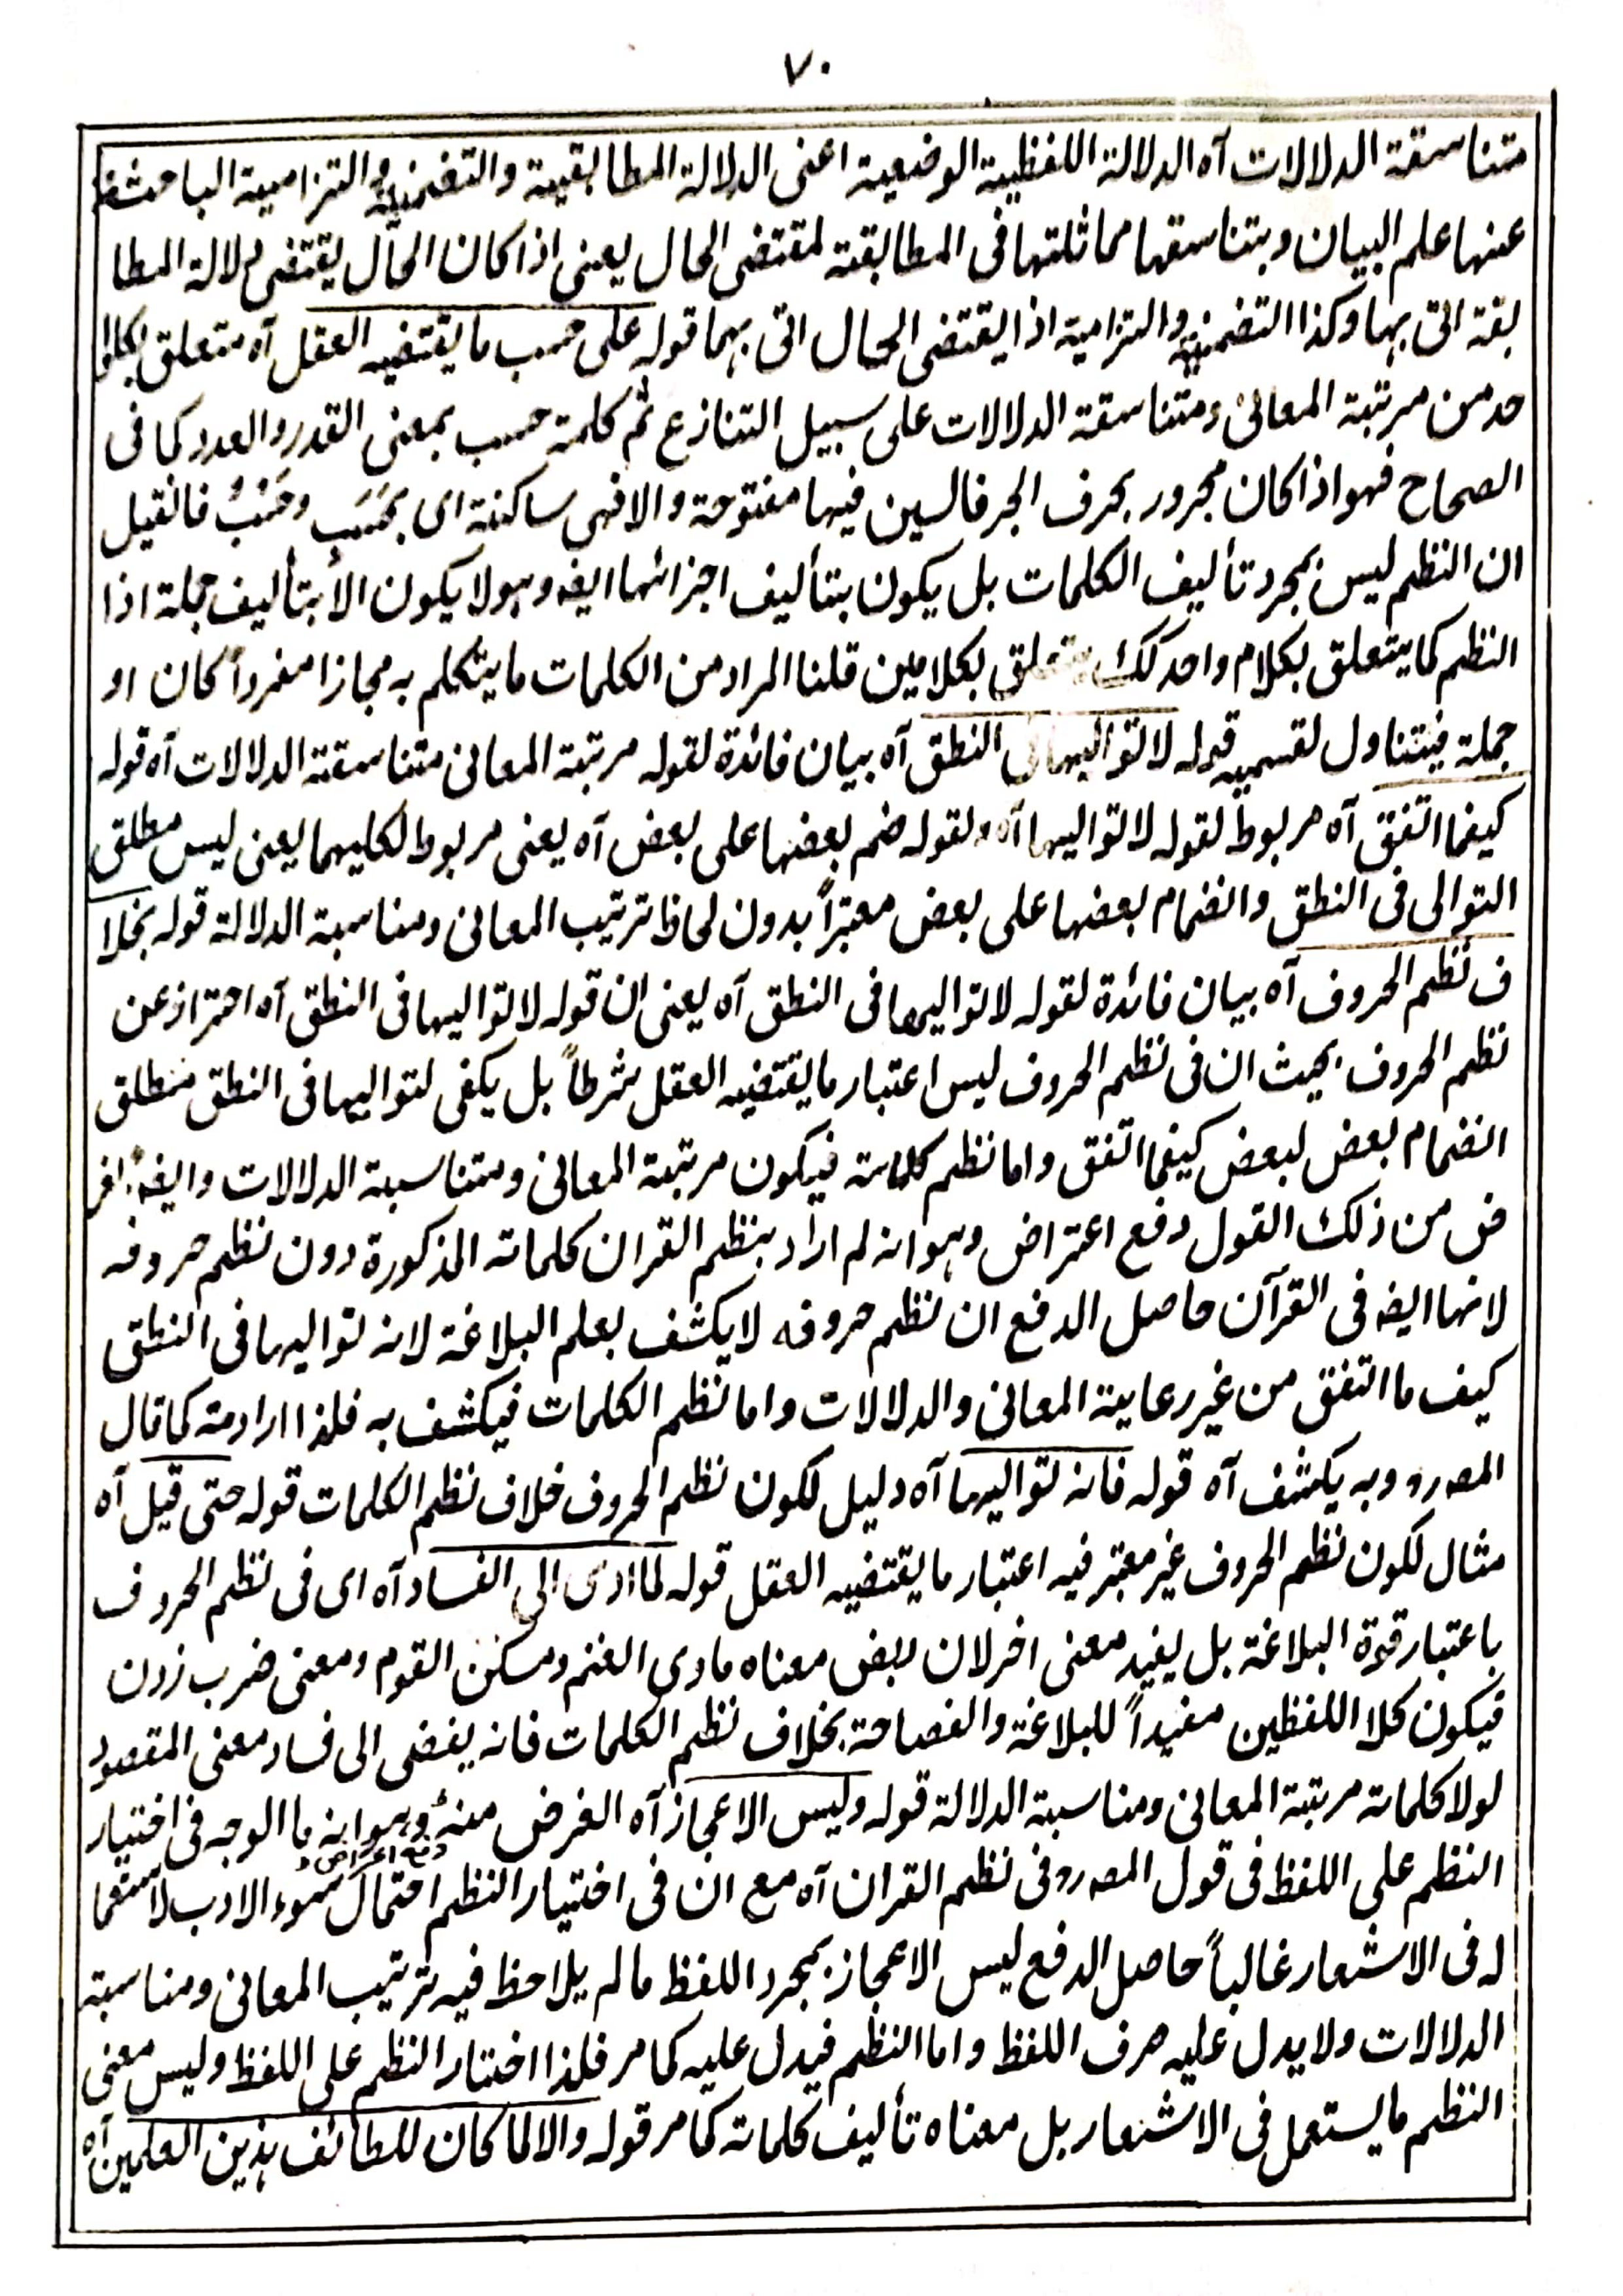 ٧٠
متناسقة الدلالات آه الدلالة اللفظية الوضعية اعنى الدلالة المطابقية والتضمنية والتزامية الباحث
عنها علم البيان وبتناسقها مماثلتها فى المطابقة لمقتضى الحال يعنى اذا كان الحال يقتضى دلالة المطا
بقة اتى بها وكذا التضمنية والتزامية اذا يقتضى الحال اتى بهما قوله على حسب ما يقتضيه العقل آه متعلق بكلوا
حد من مرتبة المعانى ومتناسقة الدلالات على سبيل التنازع ثم كلمة حسب بمعنى القدر والعدد كما فى
الصحاح فهو اذا كان مجرور بحرف الجر فالسين فيها مفتوحة والا فهى ساكنة اى بحَسَب وحَسْبُ فانقيل
ان النظم ليس بمجرد تأليف الكلمات بل يكون بتأليف اجزائها ايضه وهو لا يكون الا بتأليف جملة اذا
النظم كما يتعلق بكلام واحد كك يتعلق بكلامين قلنا المراد من الكلمات ما يتكلم به مجازا مفرداً كان او
جملة فيتناول لقسميه قوله لا تواليها فى النطق آه بيان فائدة لقوله مرتبة المعانى متناسقة الدلالات آه قوله
كيفما اتفق آه مربوط لقوله لا تواليها آه ولقوله ضم بعضها على بعض آه يعنى مربوط لكليهما يعنى ليس مطلق
التوالى فى النطق وانضمام بعضها على بعض معتبراً بدون لحاظ ترتيب المعانى ومناسبة الدلالة قوله بخلا
ف نظم الحروف آه بيان فائدة لقوله لا تواليها فى النطق آه يعنى ان قوله لا تواليها فى النطق آه احتراز عن
نظم الحروف بحيث ان فى نظم الحروف ليس اعتبار ما يقتضيه العقل شرطاً بل يكفى لتواليها فى النطق مطلق
انضمام بعض لبعض كيفما اتفق واما نظم كلماته فيكون مرتبة المعانى ومتناسبة الدلالات وايضه غر
ض من ذلك القول دفع اعتراض وهو انه لم اراد بنظم القران كلماته المذكورة دون نظم حروفه
لانها ايضه فى القرآن حاصل الدفع ان نظم حروفه لا يكشف بعلم البلاغة لانه تواليها فى النطق
كيف ما اتفق من غير رعاية المعانى والدلالات واما نظم الكلمات فيكشف به فلذا اراد مته كما قال
المصرو وبه يكشف آه قوله فانه تواليها آه دليل لكون نظم الحروف خلاف نظم الكلمات قوله حتى قيل آه
مثال لكون نظم الحروف غير معتبر فيه اعتبار ما يقتضيه العقل قوله لما ادى الى الفساد آه اى فى نظم الحروف
باعتبار قوة البلاغة بل يفيد معنى اخر لان ربض معناه ماوى الغنم ومسكن القوم ومعنى ضرب زدن
فيكون كلا اللفظين مفيداً للبلاغة والفصاحة بخلاف نظم الكلمات فانه يفضى الى فساد معنى المقصود
لولا كلماته مرتبة المعانى ومناسبة الدلالة قوله وليس الاعجاز آه الغرض منه دفع اعتراض وهو انه ما الوجه فى اختيار
النظم على اللفظ فى قول المصرو فى نظم القران آه مع ان فى اختيار النظم احتمال سوء الادب لاستعما
له فى الاشعار غالباً حاصل الدفع ليس الاعجاز بمجرد اللفظ ما لم يلاحظ فيه ترتيب المعانى ومناسبة
الدلالات ولا يدل عليه صرف اللفظ واما النظم فيدل عليه كما مر فلذا اختار النظم على اللفظ وليس معنى
النظم ما يستعمل فى الاشعار بل معناه تأليف كلماته كما مر قوله والا لما كان للطائف بذين العلمين آه